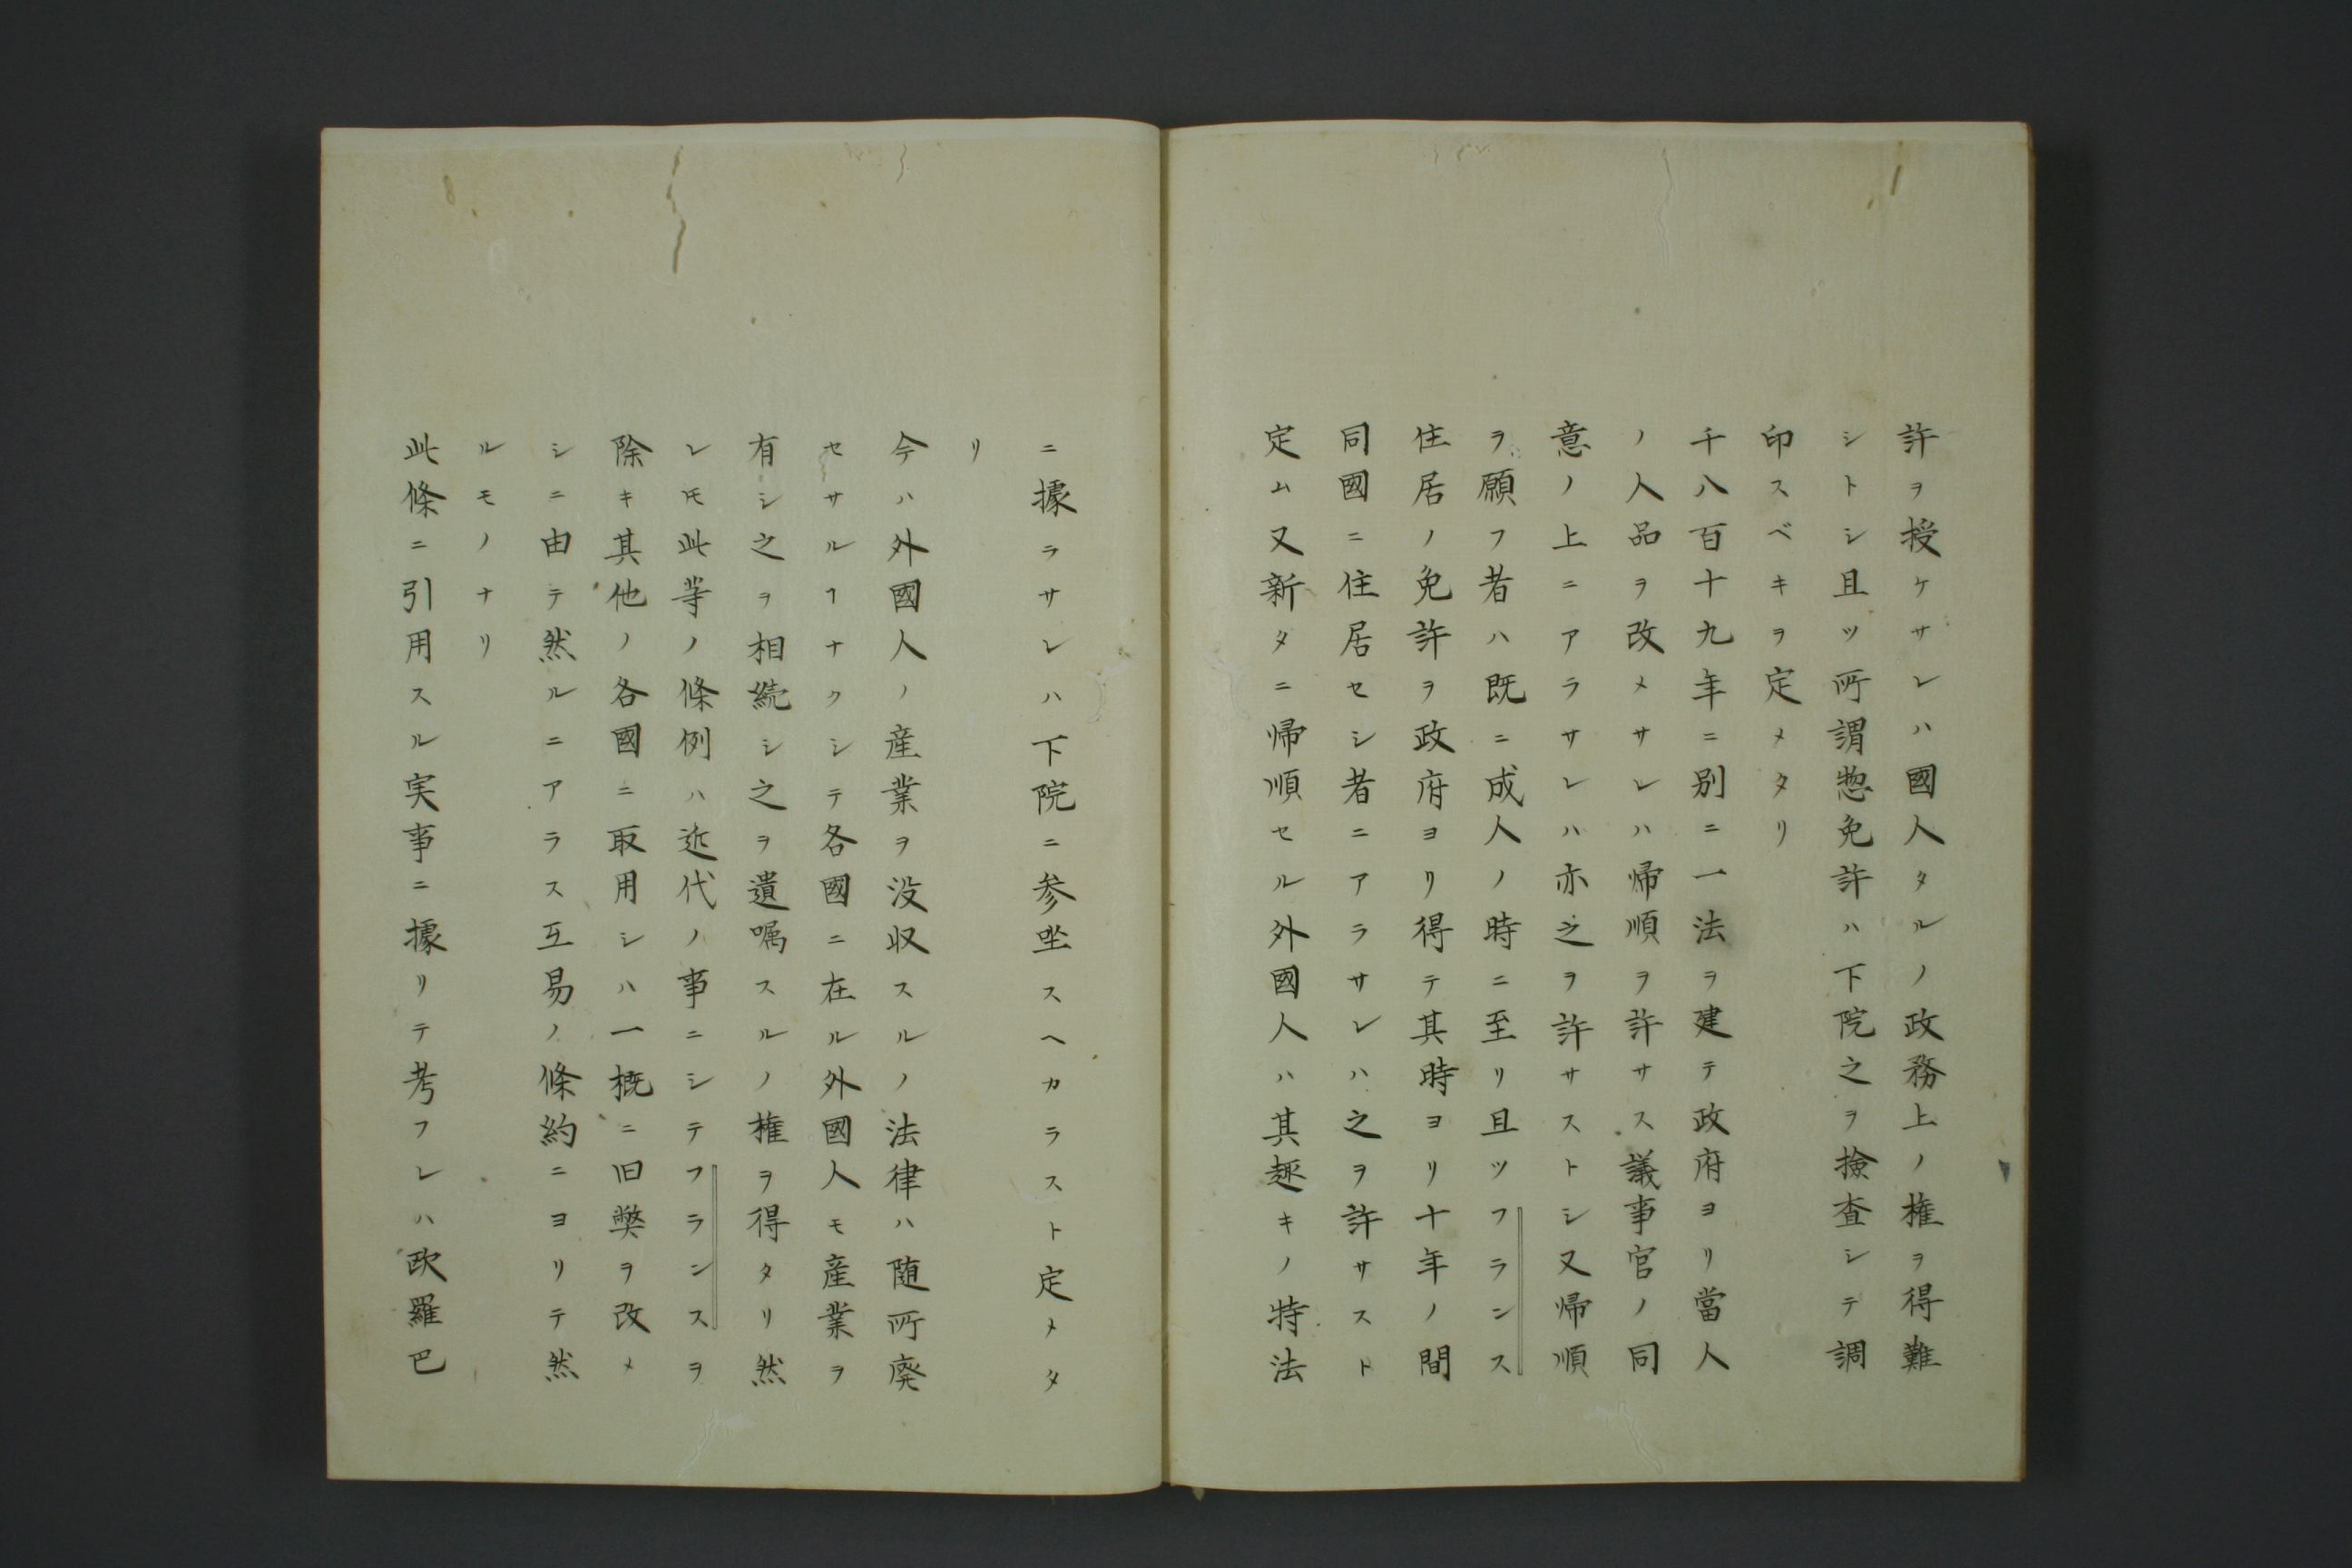 許ヲ授ケサレハ國人タルノ政務上ノ権ヲ得難
シトシ且ツ所謂惣免許ハ下院之ヲ撿査シテ調
印スベキヲ定メタリ
千八百十九年ニ別ニ一法ヲ建テ政府ヨリ當人
ノ人品ヲ改メサレハ帰順ヲ許サス議事官ノ同
意ノ上ニアラサレハ亦之ヲ許サストシ又帰順
ヲ願フ者ハ既ニ成人ノ時ニ至リ且ツフランス
住居ノ免許ヲ政府ヨリ得テ其時ヨリ十年ノ間
同國ニ住居セシ者ニアラサレハ之ヲ許サスト
定ム又新タニ帰順セル外國人ハ其趣キノ特法
ニ據ラサレハ下院ニ参坐スヘカラスト定メタ
リ
今ハ外國人ノ産業ヲ没収スルノ法律ハ随所廃
セサルヿナクシテ各國ニ在ル外國人モ産業ヲ
有シ之ヲ相続シ之ヲ遺嘱スルノ権ヲ得タリ然
レ𪜈此等ノ條例ハ近代ノ事ニシテフランスヲ
除キ其他ノ各國ニ取用シハ一概ニ旧弊ヲ改メ
シニ由テ然ルニアラス互易ノ條約ニヨリテ然
ルモノナリ
此條ニ引用スル実事ニ據リテ考フレハ欧羅巴